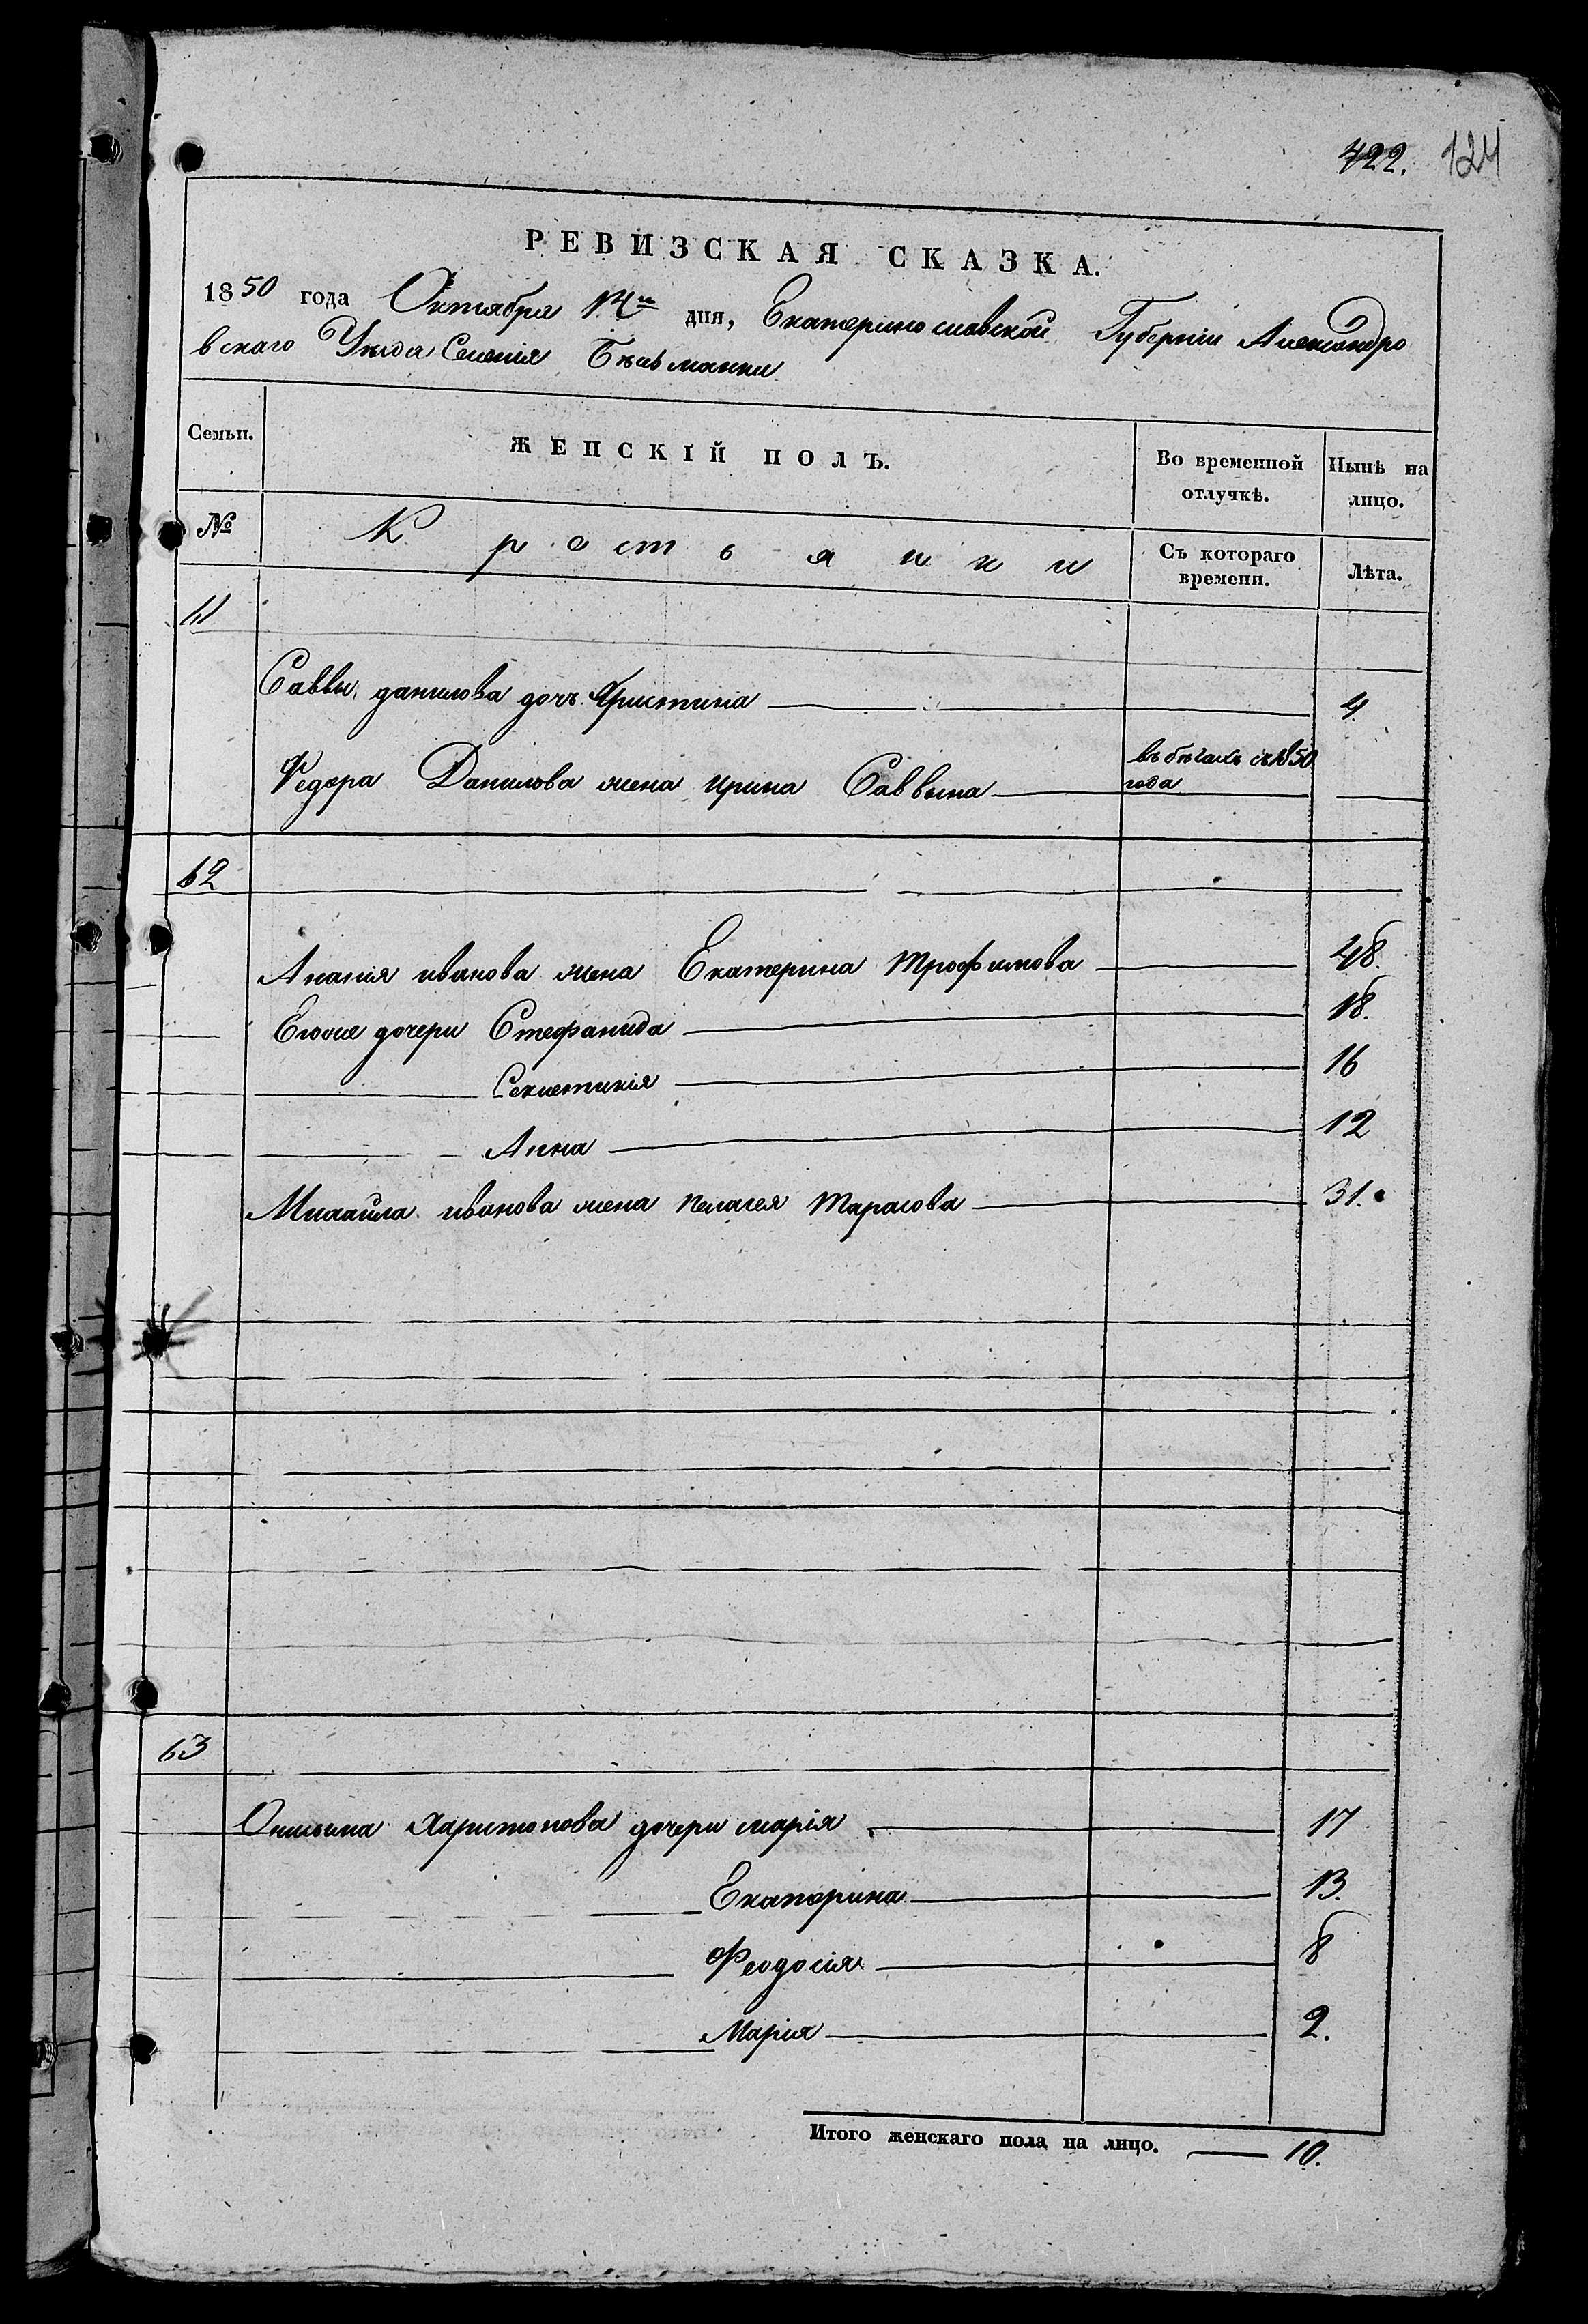 422. 124
РЕВИЗСКАЯ СКАЗКА.
1850 года Октября дня, Екатеринославской Губерніи Александро
вскаго Уѣзда Селенія Бѣльманки
Семьи. ЖЕНСКІЙ ПОЛЪ. Во временной отлучкѣ. Нынѣ на лицо.
№ Крестьянки Съ котораго времени. Лѣта.
61
Саввы данилова дочь Христина 4
Федора Данилова жена ирина Саввина въ бѣгахъ съ 1850 года
62
Анания иванова жена Екатерина трофимова 48.
Еговые дочери Стефанида 18.
Секлетикія 16
Анна 12
Михаила иванова жена пелагея тарасова 31.
63
Онисима Харитонова дочери марія 17
Екатерина 13.
Феодосія 8
Марія 2.
Итого женскаго пола на лицо. 10.